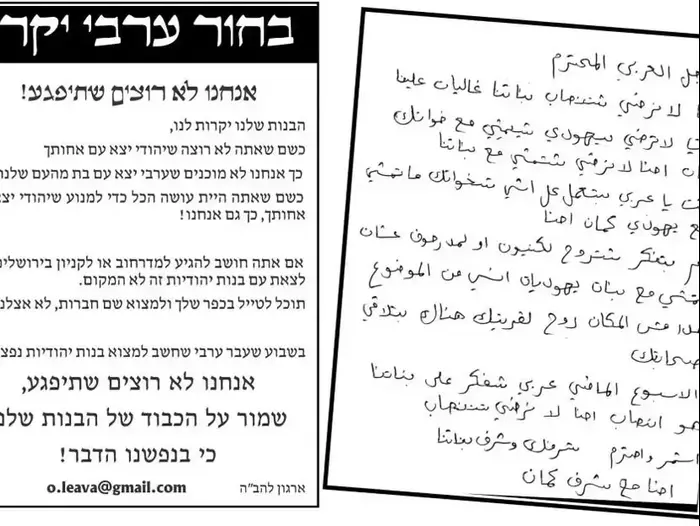 בחור ערבי יקר
אנחנו לא רוצים שתיפגע!
הבנות שלנו יקרות לנו,
כשם שאתה לא רוצה שיהודי יצא עם אחותך
כך אנחנו לא מוכנים שערבי יצא עם בת מהעם
כשם שאתה היית עושה הכל כדי למנוע שיהודי
אחותך, כך גם אנחנו!
אם אתה חושב להגיע למדרחוב או לקניון
לצאת עם בנות יהודיות זה לא המקום.
תוכל לטייל בכפר שלך ולמצוא שם חברות, לא
בשבוע שעבר ערבי שחשב למצוא בנות יהודיות
אנחנו לא רוצים שתיפגע,
שמור על הכבוד של הבנות
כי בנפשנו הדבר!
ארגון להב"ה o.leava@gmail.com
العربي المحترم
لا نرضي بناتنا غاليات علينا
لا ترضي يهودي مع خواتك
احنا لا نرضي مع بناتنا
يا عربي بتعمل كل اشي
يهودي كمان احنا
بتفكر لكنيون او لمدرحوف عشان
مع بنات يهوديات انسي من الموضوع
مش المكان روح لقريتك هناك بتلاقي
الاسبوع الماضي عربي على بناتنا
هو انصاب احنا لا نرضي
واحترم شرفك وشرف بناتنا
احنا شرف كمان